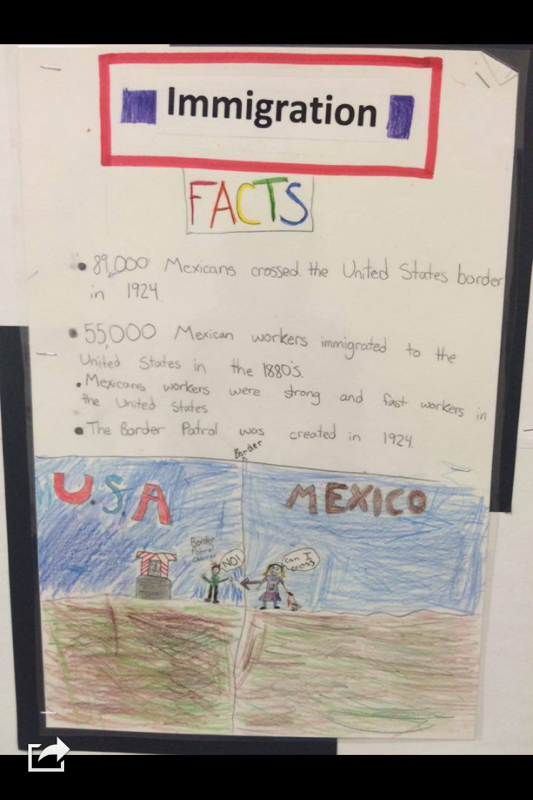 Immigration
FACTS
• 89,000 Mexicans crossed the United States border
in 1924.
• 55,000 Mexican workers immigrated to the
United States in the 1880's.
• Mexicans workers were strong and fast workers in
the United States
• The Border Patrol was created in 1924.
Border
U.S.A
MEXICO
Border
Patrol
NO!
can I
cross